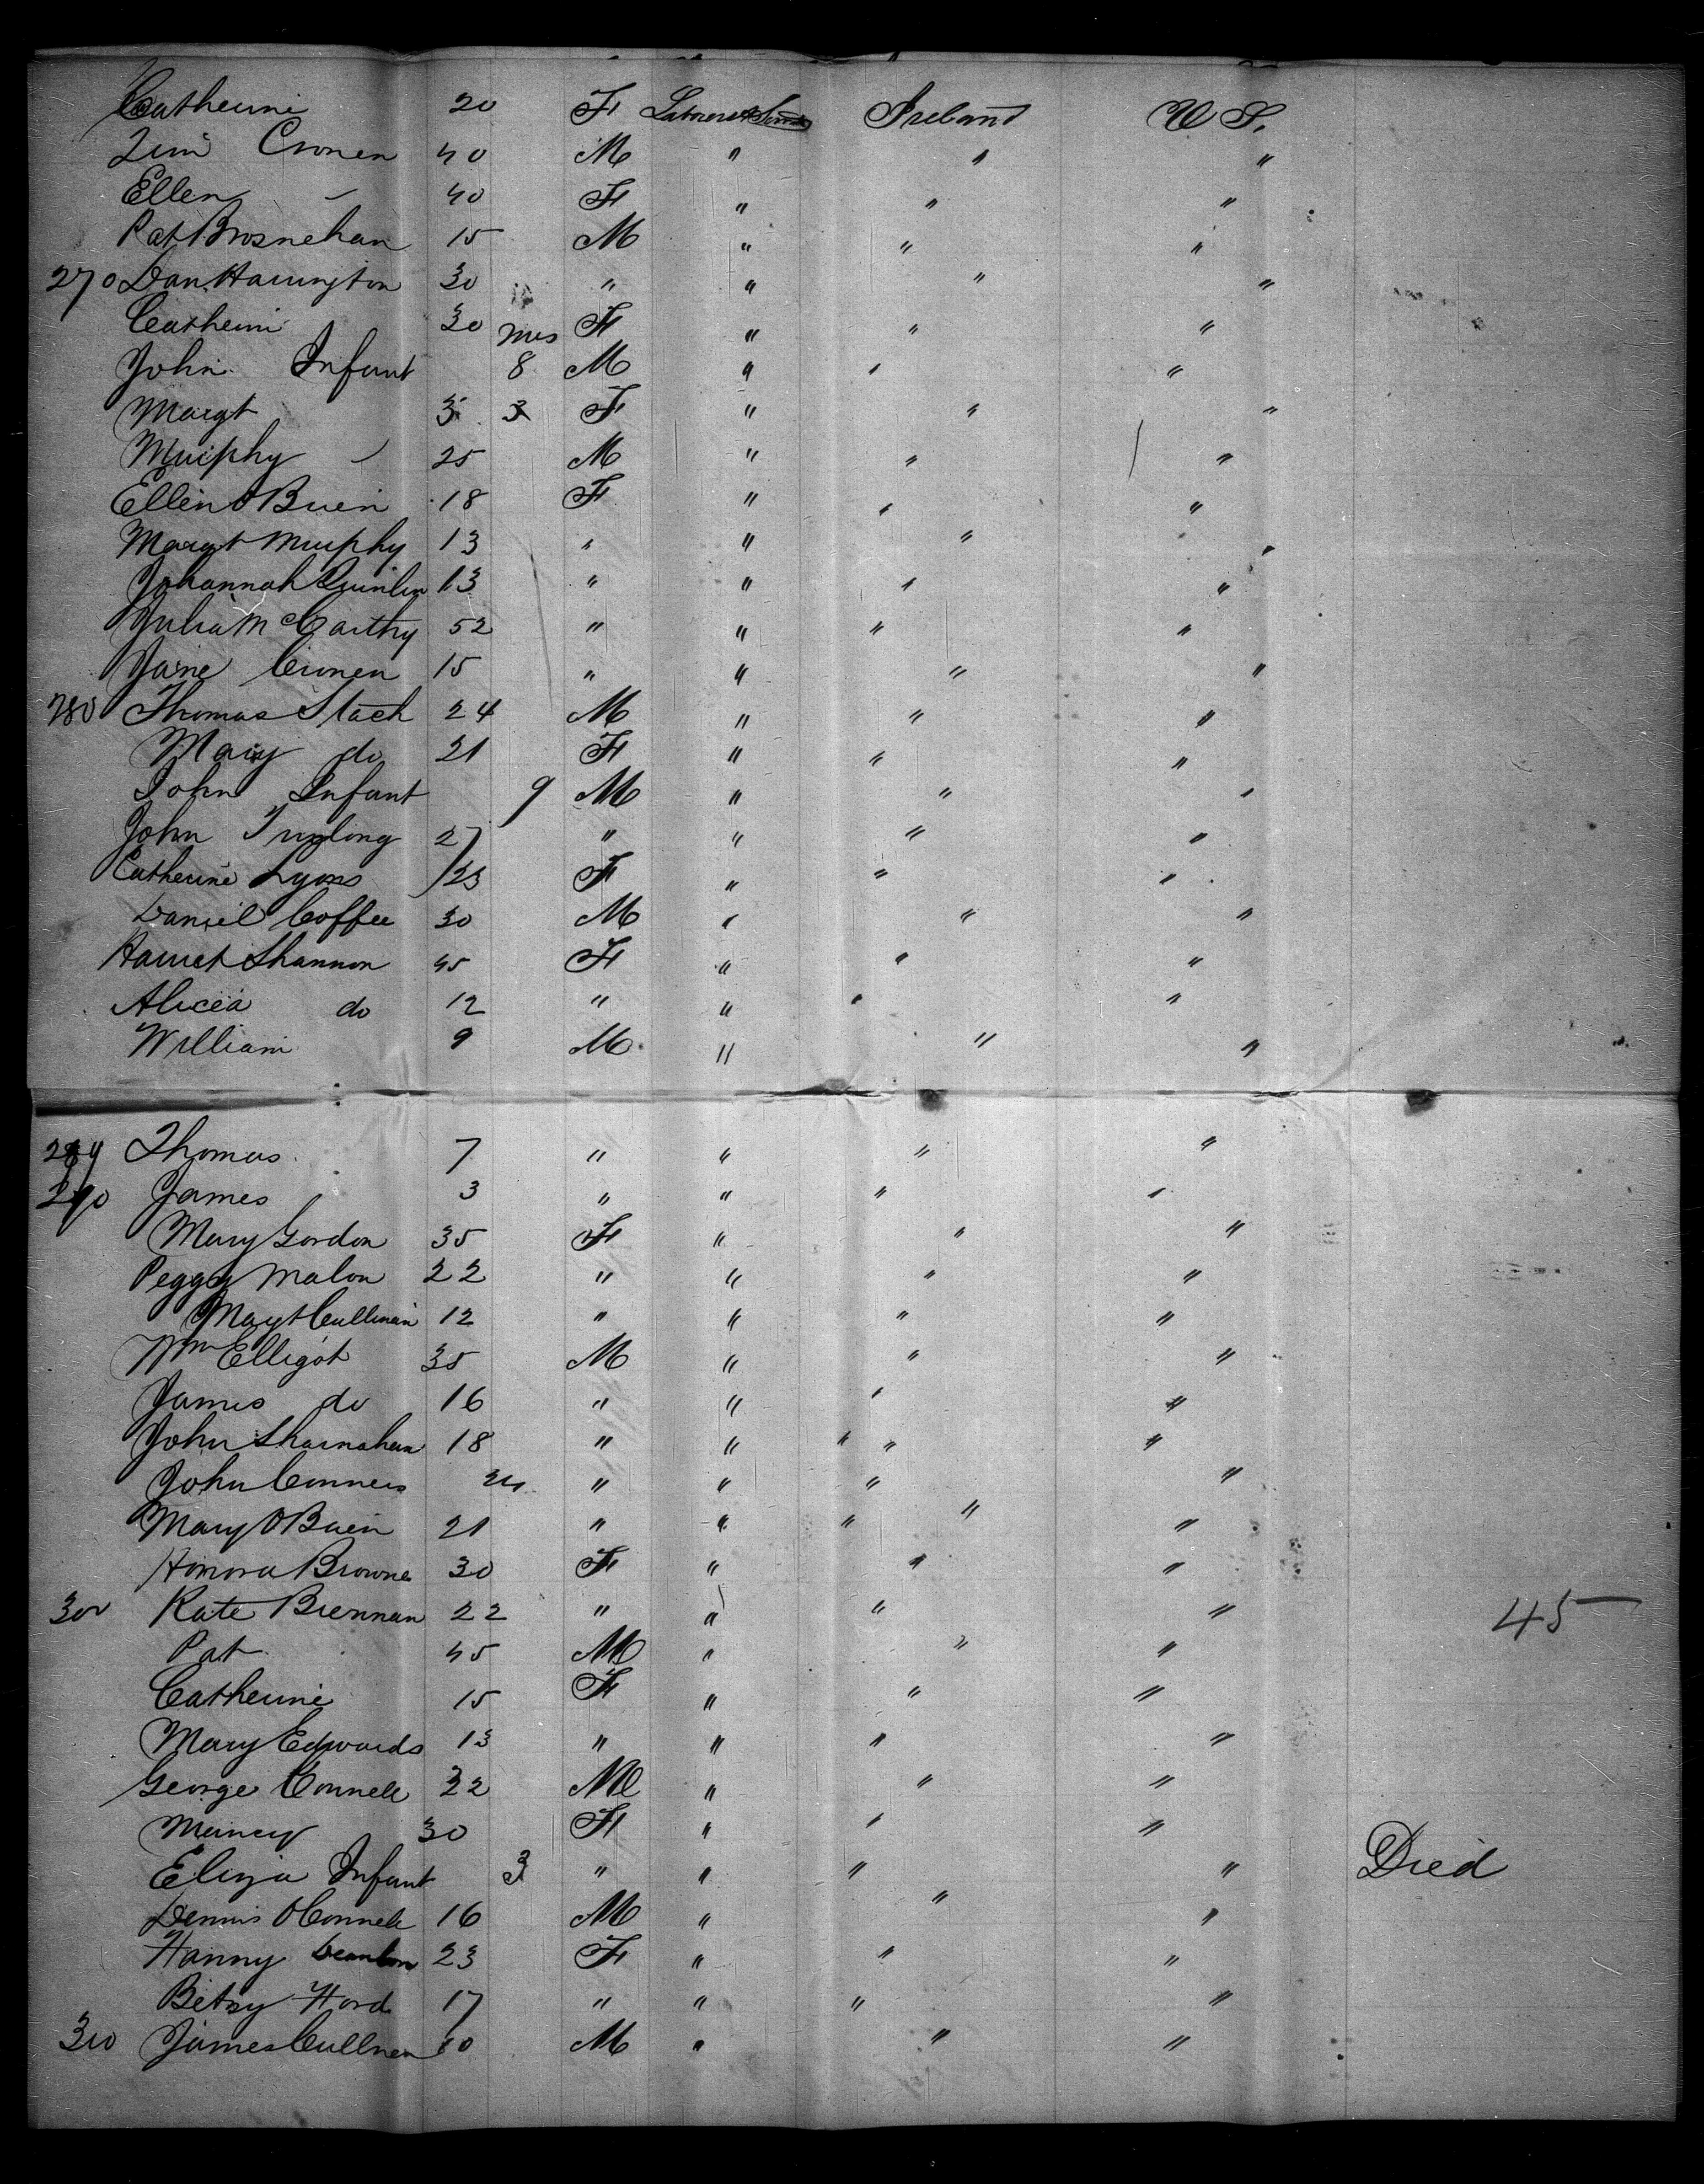 Catherine 20 F Laborers & Ireland U S.
Tim Cronen 40 M " " "
Ellen — 40 F " " "
Pat Brosnehan 15 M " " "
270 Dan Harrington 30 " " " "
Catherine 30 mos F " " "
John Infant 8 M " " "
Margt 3 F " " "
Murphy — 25 M " " "
Ellen O Brien 18 F " " "
Margt Murphy 13 " " " "
Johannah Quinlin 13 " " " "
Julia McCarthy 52 " " " "
Jane Cronen 15 " " " "
280 Thomas Stack 24 M " " "
Mary do 21 F " " "
John Infant 9 M " " "
John 27 " " " "
Catherine Lyons 23 F " " "
Daniel Coffee 30 M " " "
Harriet Shannon 45 F " " "
Alicea do 12 " " " "
William 9 M " " "
289 Thomas 7 " " " "
290 James 3 " " " "
Mary Gordon 35 F " " "
Peggy Malon 22 " " " "
Margt Cullinan 12 " " " "
Wm Elligot 35 M " " "
James do 16 " " " "
John Sharnahan 18 " " " " "
John Conners " " " "
Mary O Brien 21 " " " " "
Honora Browne 30 F " " "
300 Kate Brennan 22 " " " " 45
Pat 45 M " " "
Catherine 15 F " " "
Mary Edwards 13 " " " "
George Connell 22 M " " "
30 F " " "
Eliza Infant 3 " " " " Died
Dennis O Connell 16 M " " "
Hanny 23 F " " "
Betsy Hord 17 " " " "
310 James Cullnen 10 M " " "